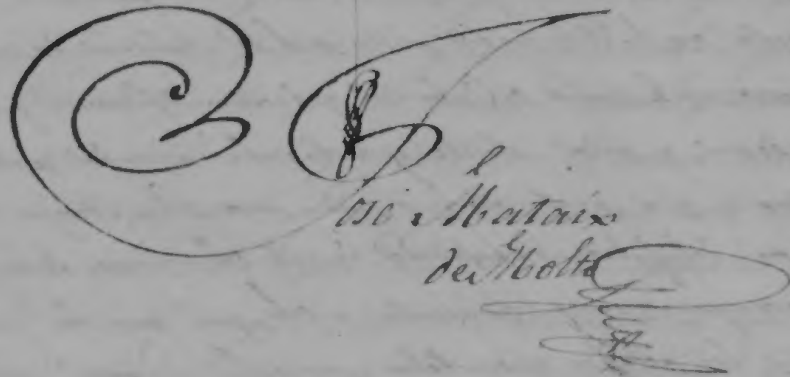 José Mataix
de Moltó